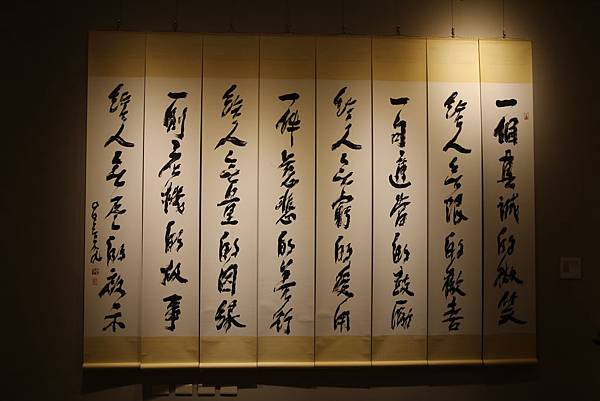 一個真誠的微笑
給人無限的歡喜
一句適當的鼓勵
給人無窮的受用
一件慈悲的善行
給人無量的因緣
一則機的故事
給人無盡的啟示